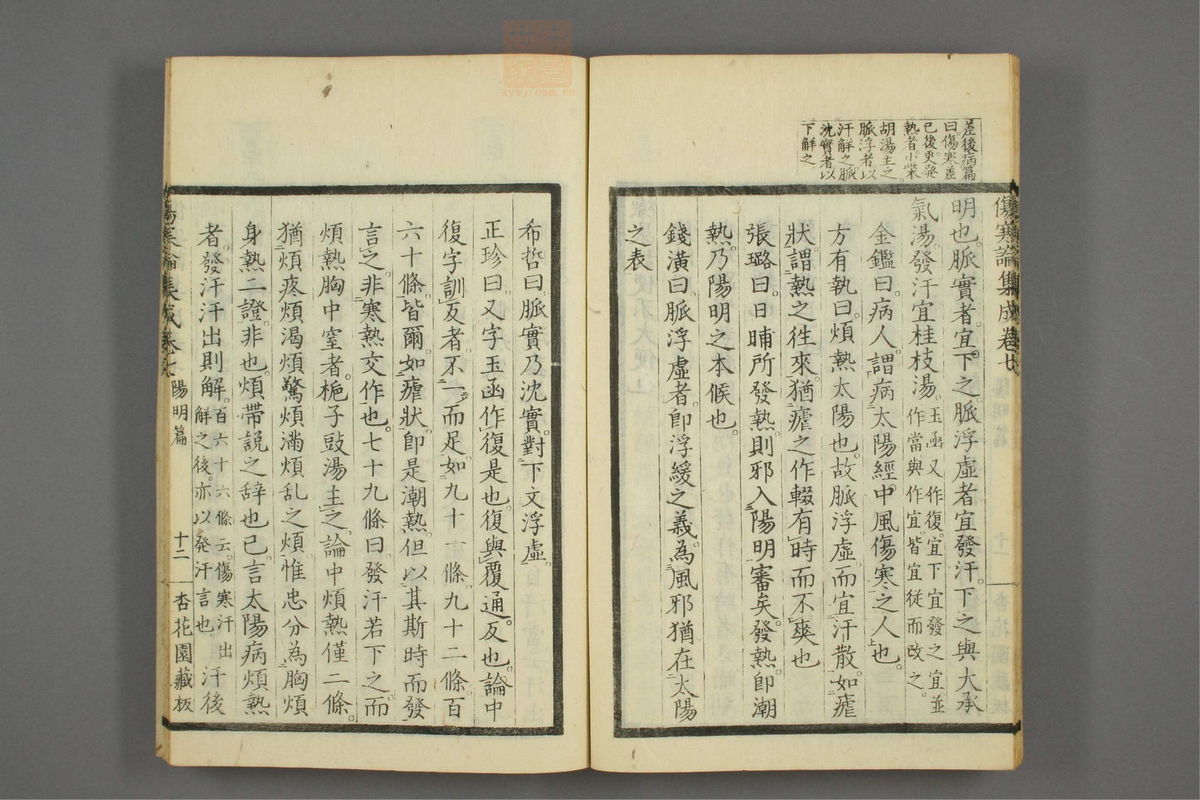 差後病篇
曰傷寒差
已後更発
熱者小柴
胡湯主之
脈浮者以
汗解之脈
沈實者以
下解之
傷寒論集成卷七
明也脈實者宜下之脈浮虛者宜發汗下之與大承
氣湯發汗宜桂枝湯玉函又作復宜下宜發之宜並作當與作宜皆宜從而改之
金鑑曰病人謂病太陽經中風傷寒之人也
方有執曰煩熱太陽也故脈浮虛而宜汗散如瘧
狀謂熱之徃來猶瘧之作輟有時而不爽也
張璐曰日晡所發熱則邪入陽明審矣發熱即潮
熱乃陽明之本候也
錢潢曰脈浮虛者即浮緩之義為風邪猶在太陽
之表
希哲曰脈實乃沈實對下文浮虛
正珍曰又字玉函作復是也復與覆通反也論中
復字訓反者不一而足如九十五條九十二條百
六十條皆爾如瘧狀即是潮熱但以其斯時而發
言之非寒熱交作也七十九條曰發汗若下之而
煩熱胸中窒者梔子豉湯主之論中煩熱僅二條
猶煩疼煩渴煩驚煩滿煩乱之煩惟忠分為胸煩
身熱二證非也煩帶説之辞也已言太陽病煩熱
者發汗汗出則解百六十六條云傷寒汗出解之後亦以発汗言也汗後
傷寒論集成卷七 陽明篇 十二 杏花園藏板
zysj.com.cn